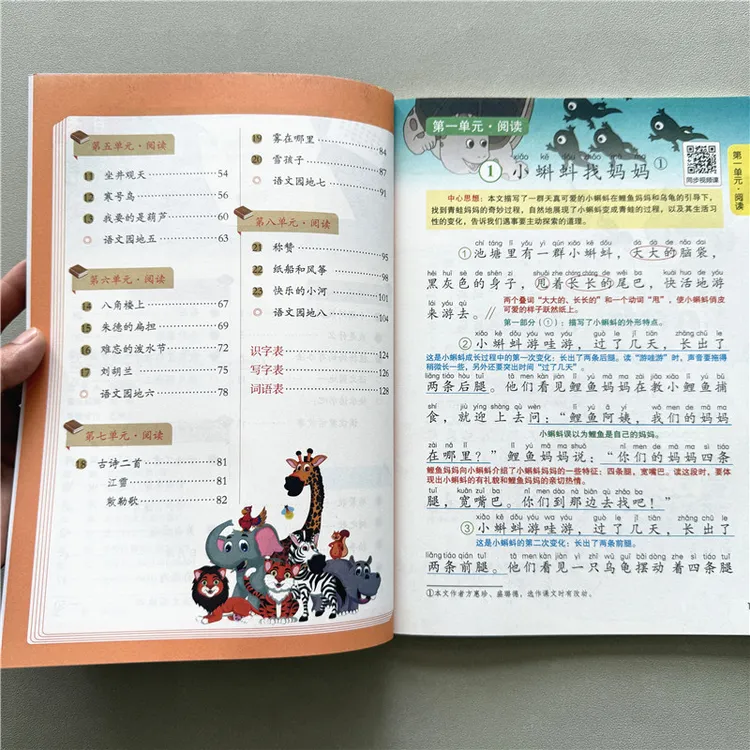 第五单元·阅读
11 坐井观天 54
12 寒号鸟 56
13 我要的是葫芦 60
语文园地五 63
第六单元·阅读
14 八角楼上 67
15 朱德的扁担 69
16 难忘的泼水节 72
17 刘胡兰 75
语文园地六 78
第七单元·阅读
18 古诗二首 81
江雪 81
敕勒歌 82
19 雾在哪里 84
20 雪孩子 87
语文园地七 91
第八单元·阅读
21 称赞 95
22 纸船和风筝 98
23 快乐的小河 101
语文园地八 104
识字表 124
写字表 126
词语表 128
第一单元·阅读
xiǎo kē dǒu zhǎo mā ma
1 小蝌蚪找妈妈①
同步视频课
第一单元·阅读
中心思想：本文描写了一群天真可爱的小蝌蚪在鲤鱼妈妈和乌龟的引导下，
找到青蛙妈妈的奇妙过程，自然地展现了小蝌蚪变成青蛙的过程，以及其生活习
性的变化，告诉我们遇事要主动探索的道理。
chí táng lǐ yǒu yì qún xiǎo kē dǒu dà dà de nǎo dai
①池塘里有一群小蝌蚪，大大的脑袋，
hēi huī sè de shēn zi shuǎi zhe cháng cháng de wěi ba kuài huo de yóu
黑灰色的身子，甩着长长的尾巴，快活地游
lái yóu qù
来游去。//
两个叠词“大大的、长长的”和一个动词“甩”，使小蝌蚪俏皮
可爱的样子跃然纸上。
第一部分（①）：描写了小蝌蚪的外形特点。
xiǎo kē dǒu yóu wa yóu guò le jǐ tiān zhǎng chū le
②小蝌蚪游哇游，过了几天，长出了
这是小蝌蚪成长过程中的第一次变化：长出了两条后腿。读“游哇游”时，声音要拖得
稍微长一些，另外还要突出时间“过了几天”。
liǎng tiáo hòu tuǐ tā men kàn jiàn lǐ yú mā ma zài jiāo xiǎo lǐ yú bǔ
两条后腿。他们看见鲤鱼妈妈在教小鲤鱼捕
shí jiù yíng shàng qù wèn lǐ yú ā yí wǒ men de mā ma
食，就迎上去问：“鲤鱼阿姨，我们的妈妈
小蝌蚪误以为鲤鱼是自己的妈妈。
zài nǎ lǐ lǐ yú mā ma shuō nǐ men de mā ma sì tiáo
在哪里？”鲤鱼妈妈说：“你们的妈妈四条
鲤鱼妈妈向小蝌蚪介绍了小蝌蚪妈妈的一些特征：四条腿，宽嘴巴。读这段时，要体
现出小蝌蚪的有礼貌和鲤鱼妈妈的亲切热情。
tuǐ kuān zuǐ ba nǐ men dào nà biān qù zhǎo ba
腿，宽嘴巴。你们到那边去找吧！”
xiǎo kē dǒu yóu wa yóu guò le jǐ tiān zhǎng chū le
③小蝌蚪游哇游，过了几天，长出了
这是小蝌蚪的第二次变化：长出了两条前腿。
liǎng tiáo qián tuǐ tā men kàn jiàn yì zhī wū guī bǎi dòng zhe sì tiáo tuǐ
两条前腿。他们看见一只乌龟摆动着四条腿
①本文作者方惠珍、盛璐德，选作课文时有改动。